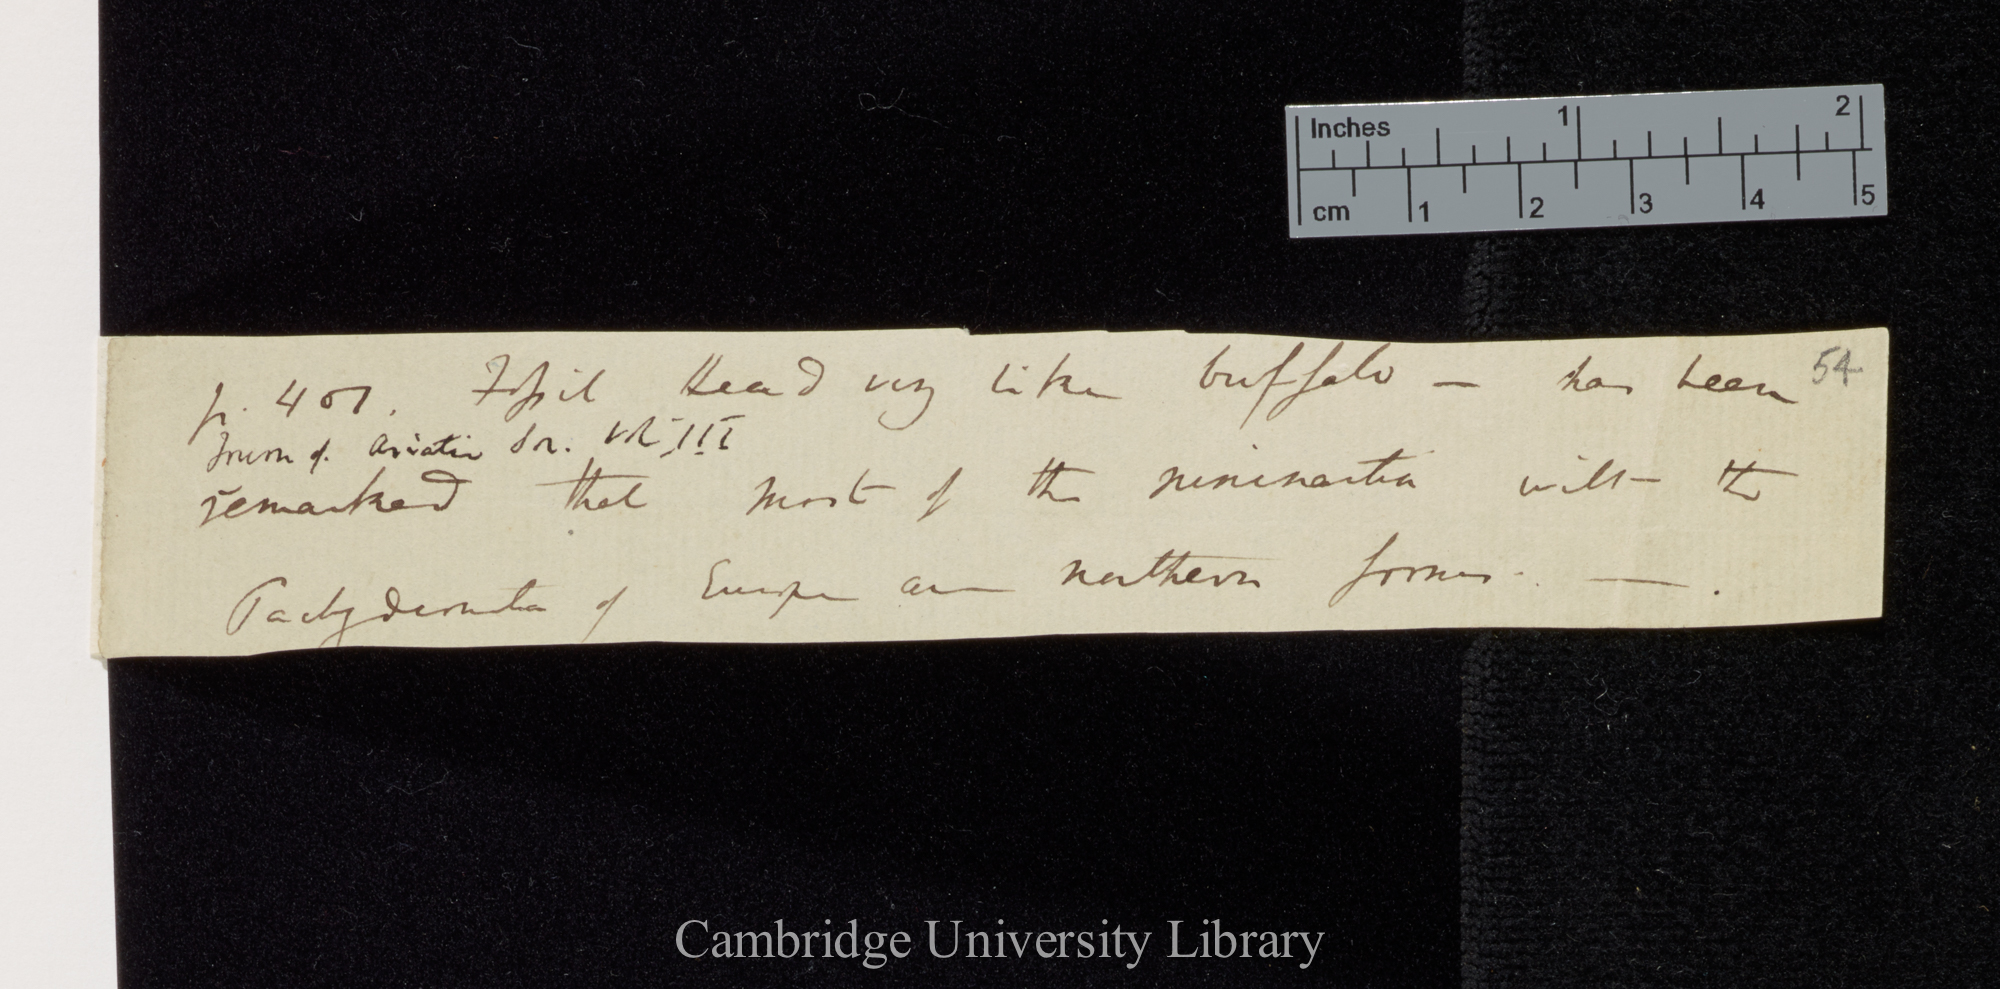 Inches 1 2
cm 1 2 3 4 5
54
p. 407. Fossil Head very like buffalo — has been
Journ of. Asiatic Soc. Vol. III
remarked that most of the ruminantia with the
Pachydermata of Europe are northern forms. — .
Cambridge University Library